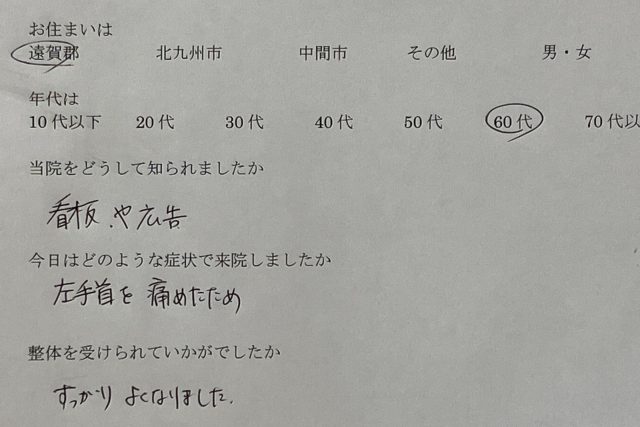 お住まいは
遠賀郡 北九州市 中間市 その他 男・女
年代は
10代以下 20代 30代 40代 50代 60代 70代以
当院をどうして知られましたか
看板や広告
今日はどのような症状で来院しましたか
左手首を痛めたため
整体を受けられていかがでしたか
すっかりよくなりました.